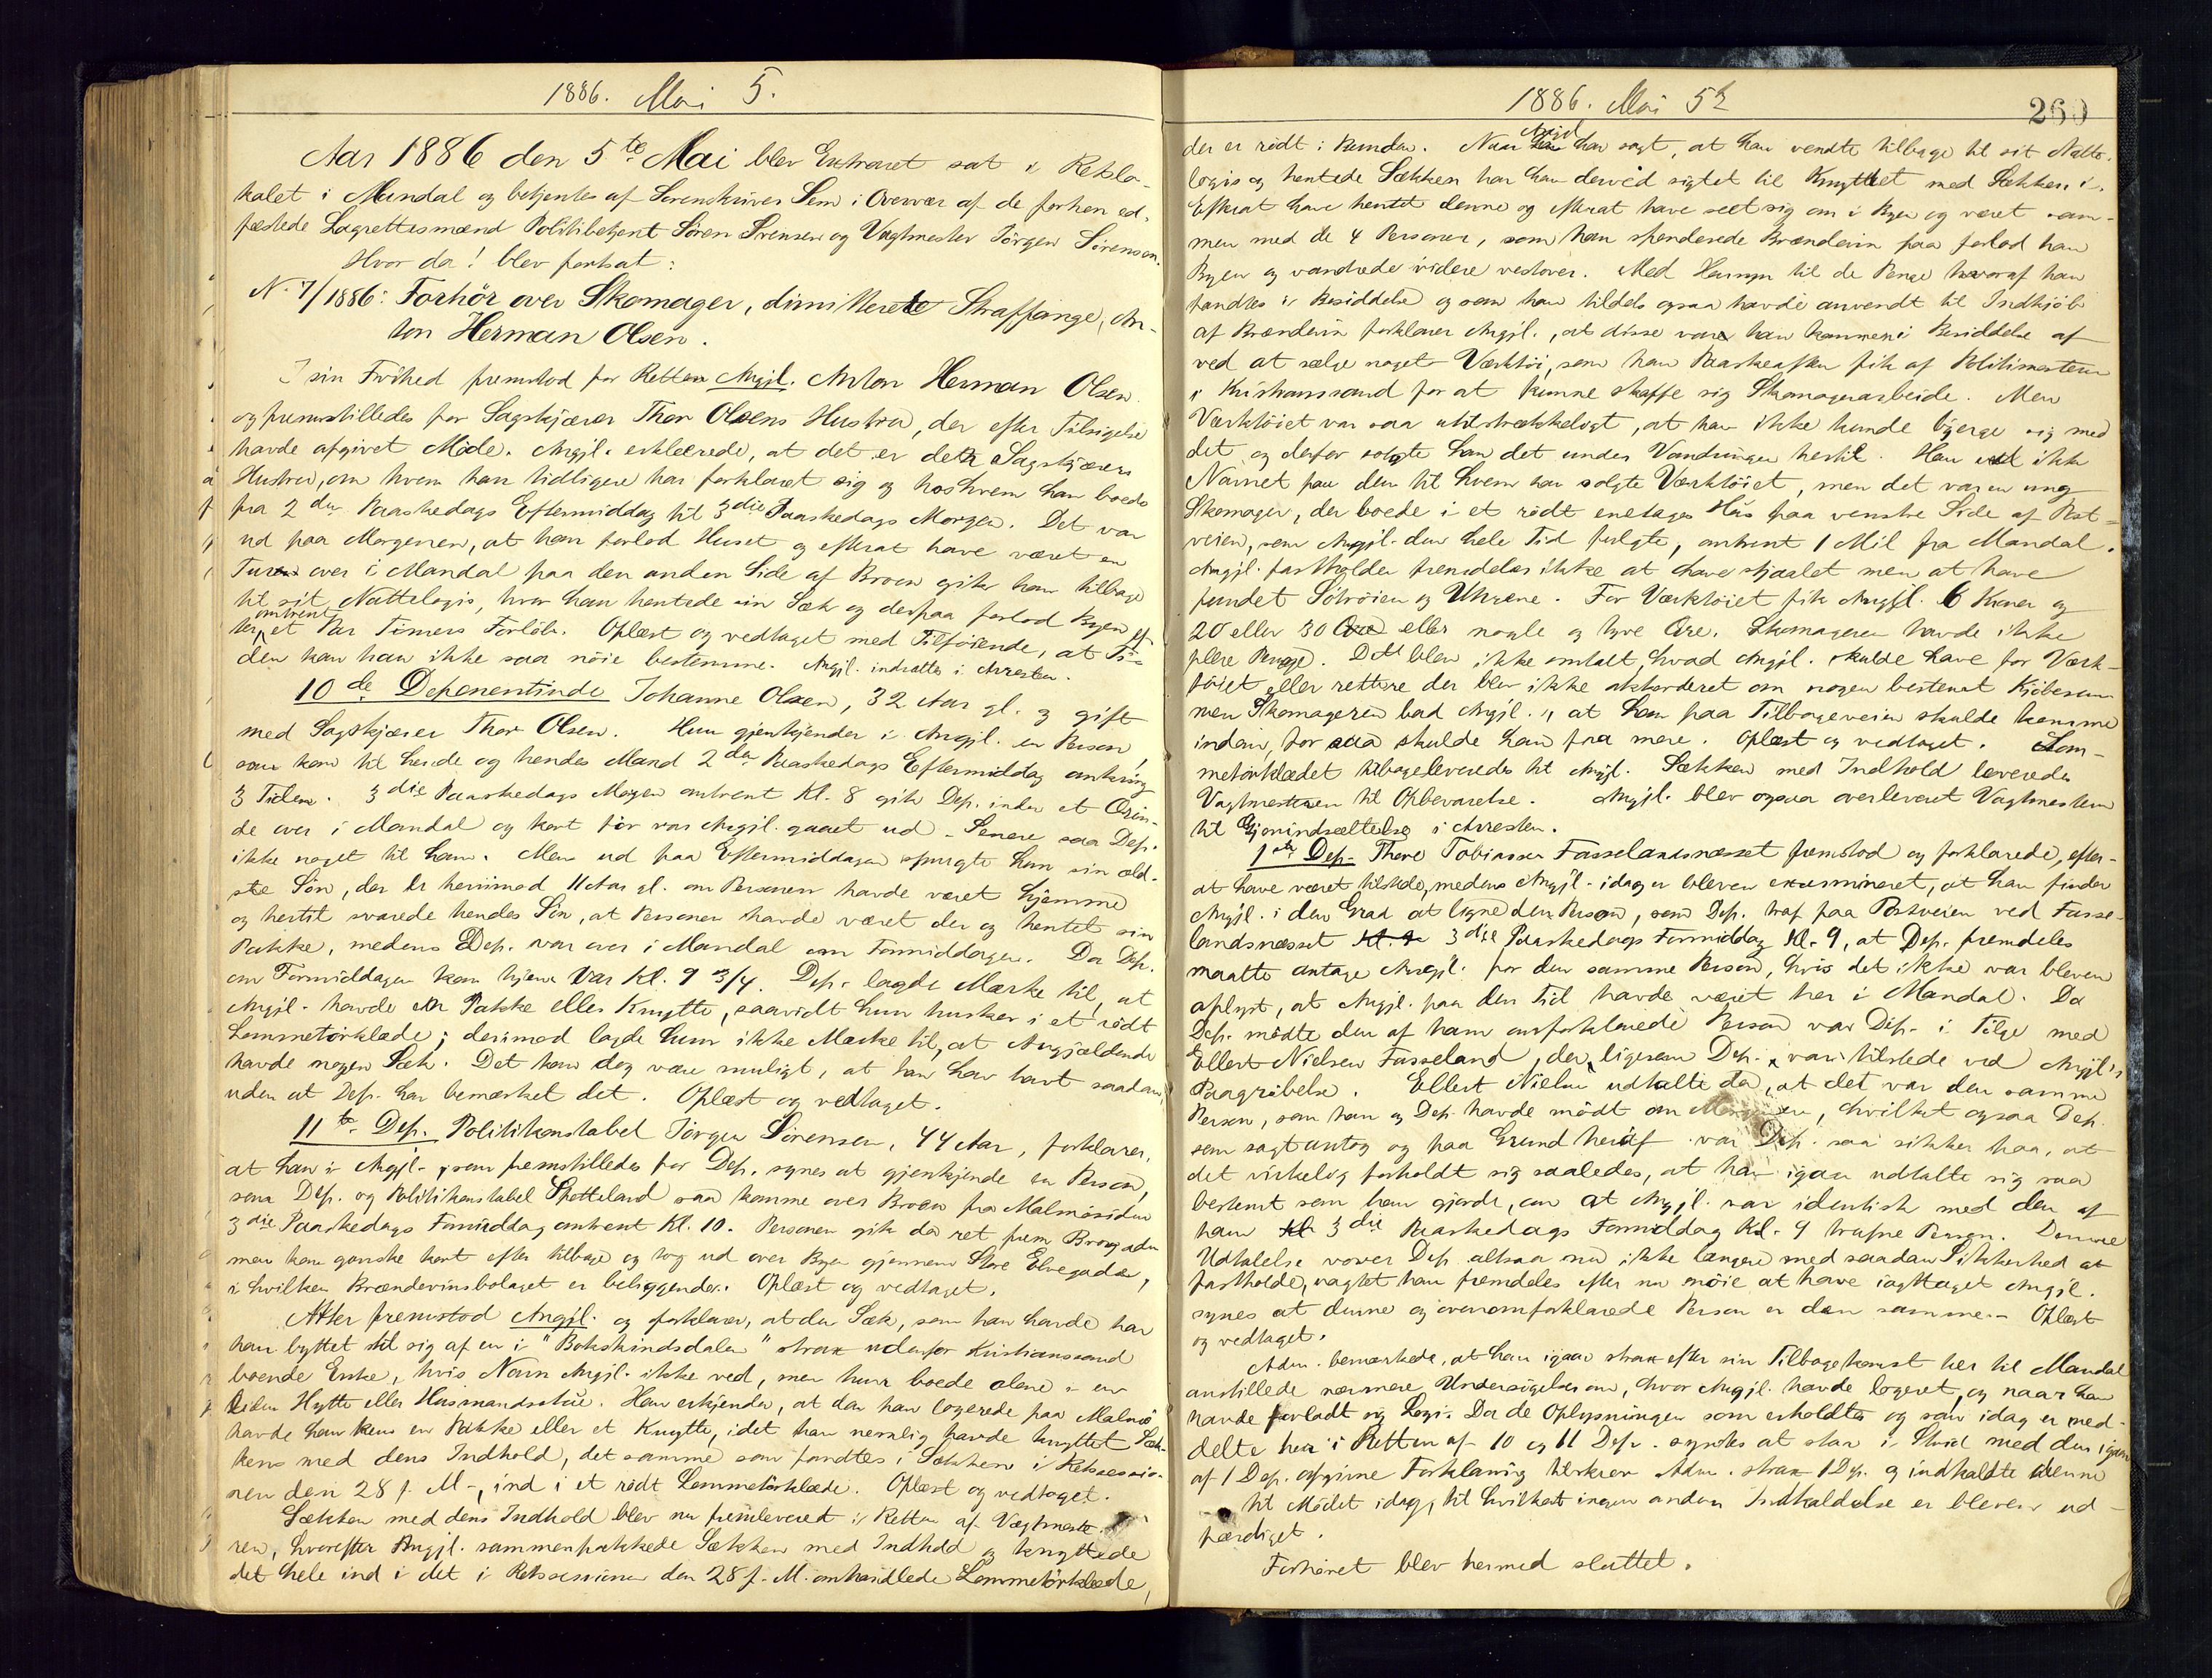 1886. Mai 5.
Aar 1886 den 5te Mai blev Extraret sat i Retslo-
kalet i Mandal og betjentes af Sorenskriver Sem i Overvær af de forhen ed-
fæstede Lagrettesmænd Politibetjent Sören Sörensen og Vagtmester Jörgen Sörensen.
Hvor da! blev fortsat:
N. 7/1886: Forhör over Skomager, dimitterede Straffange, An-
ton Herman Olsen.
I sin Frihed fremstod for Retten Angjl. Anton Herman Olsen
og fremstilledes for Sagskjærer Thor Olsens Hustru, der efter Tilsigelse
havde afgivet Möde. Angjl. erklærede, at det er den Sagskjærers
Hustru, om hvem han tidligere har forklaret sig og hos hvem han boede
fra 2den Paaskedags Eftermiddag til 3die Paaskedags Morgen. Det var
ud paa Morgenen, at han forlod Huset og efterat have været en
Tur over i Mandal paa den anden Side af Broen gik han tilbage
til sit Nattelogis, hvor han hentede sin Sæk og derpaa forlod Byen ef-
ter omtrent et Par Timers Forlöb. Oplæst og vedtaget med Tilföiende, at Ti-
den kan han ikke saa nöie bestemme. Angjl. indsattes i Arresten.
10de Deponentinde Johanne Olsen, 32 Aar gl. og gift
med Sagskjærer Thor Olsen. Hun gjenkjender i Angjl. en Person
som kom til hende og hendes Mand 2den Paaskedags Eftermiddag omkring
3 Tiden. 3die Paaskedags Morgen omtrent Kl. 8 gik Dep. inden et Ærin-
de over i Mandal og kort för var Angjl. gaaet ud. Senere saa Dep.
ikke noget til ham. Men ud paa Eftermiddagen spurgte hun sin æld-
ste Sön, der er henimod 11 Aar gl. om Personen havde været hjemme
og hertil svarede hendes Sön, at Personen havde været der og hentet sin
Pakke, medens Dep. var over i Mandal om Formiddagen. Da Dep.
om Formiddagen kom hjem var Kl. 9 3/4. Dep. lagde Mærke til, at
Angjl. havde en Pakke eller Knytte, saavidt hun husker i et rödt
Lommetörklæde; derimod lagde hun ikke Mærke til, at Angjældende
havde nogen Sæk. Det kan dog være muligt, at han har havt saadan,
uden at Dep. har bemærket det. Oplæst og vedtaget.
11te Dep. Politikonstabel Jörgen Sörensen, 44 Aar, forklarer,
at han i Angjl., som fremstilledes for Dep. synes at gjenkjende en Person,
som Dep. og Politikonstabel Spetteland saa komme over Broen fra Malmösiden
3die Paaskedags Formiddag omtrent Kl. 10. Personen gik da ret frem Brogaden
men kom ganske kort efter tilbage og tog ud over Byen gjennem Store Elvegade,
i hvilken Brændevinsbolaget er beliggende. Oplæst og vedtaget.
Atter fremstod Angjl. og forklarer, at den Sæk, som han havde har
han byttet til sig af en i "Bakskindsdalen" strax udenfor Kristianssand
boende Enke, hvis Navn Angjl. ikke ved, men hun boede alene i en
liden Hytte eller Husmandsstue. Han erkjender, at da han logerede paa Malmö
havde han kun en Pakke eller et Knytte, idet han nemlig havde knyttet Sæk-
kens med dens Indhold, det samme som fandtes i Sækken i Retssessio-
nen den 28 f. M., ind i et rödt Lommetörklæde. Oplæst og vedtaget.
Sækken med dens Indhold blev nu fremleveret i Retten af Vagtmeste-
ren, hvorefter Angjl. sammenpakkede Sækken med Indhold og knyttede
det hele ind i det i Retssessionen den 28 f. M. omhandlede Lommetörklæde,
1886. Mai 5te
260
der er rödt i Bunden. Naar Angjl. har sagt, at han vendte tilbage til sit Natte-
logis og hentede Sækken har han derved sigtet til Knyttet med Sækken i.
Efterat have hentet denne og efterat have seet sig om i Byen og været sam-
men med de 4 Personer, som han spenderede Brændevin paa forlod han
Byen og vandrede videre vestover. Med Hensyn til de Penge hvoraf han
fandtes i Besiddelse og som han tildels ogsaa havde anvendt til Indkjöb
af Brændevin forklarer Angjl., at disse var han kommen i Besiddelse af
ved at sælge noget Værktöi, som han Paaskeaften fik af Politimesteren
i Kristianssand for at kunne skaffe sig Skomagerarbeide. Men
Værktöiet var saa utilstrækkeligt, at han ikke kunde bjerge sig med
det og derfor solgte han det under Vandringen hertil. Han ved ikke
Navnet paa den til hvem han solgte Værktöiet, men det var en ung
Skomager, der boede i et rödt enetages Hus paa venstre Side af Post-
veien, som Angjl. den hele Tid fulgte, omtrent 1 Mil fra Mandal.
Angjl. fastholder fremdeles ikke at have stjaalet men at have
fundet Sölvöien og Uhrene. For Værktöiet fik Angjl. 6 Kroner og
20 eller 30 Öre eller nogle og tyve Öre. Skomageren havde ikke
flere Penge. Det blev ikke omtalt, hvad Angjl. skulde have for Værk-
töiet eller rettere der blev ikke akkorderet om nogen bestemt Kjöbesum
men Skomageren bad Angjl., at han paa Tilbageveien skulde komme
indom, for saa skulde han faa mere. Oplæst og vedtaget. Lom-
metörklædet tilbageleveredes til Angjl. Sækken med Indhold leveredes
Vagtmesteren til Opbevarelse. Angjl. blev ogsaa overleveret Vagtmesteren
til Gjenindsættelse i Arresten.
1ste Dep. Thore Tobiassen Fasselandsnæsset fremstod og forklarede, efter-
at have været tilstede, medens Angjl. idag er bleven examineret, at han finder
Angjl. i den Grad at ligne den Person, som Dep. traf paa Postveien ved Fasse-
landsnæsset 3die Paaskedags Formiddag Kl. 9, at Dep. fremdeles
maatte antage Angjl. for den samme Person, hvis det ikke var bleven
oplyst, at Angjl. paa den Tid havde været her i Mandal. Da
Dep. mödte den af ham omforklarede Person var Dep. i Fölge med
Ellert Nielsen Fasseland, der, ligesom Dep., var tilstede ved Angjl's
Paagribelse. Ellert Nielsen udtalte da, at det var den samme
Person, som han og Dep. havde mödt om Morgenen, hvilket ogsaa Dep.
som sagt antog og paa Grund heraf var Dep. saa sikker paa, at
det virkelig forholdt sig saaledes, at han igaar udtalte sig saa
bestemt som han gjorde, om at Angjl. var identisk med den af
ham 3die Paaskedags Formiddag Kl. 9 trufne Person. Denne
Udtalelse vover Dep. altsaa nu ikke længere med saadan Sikkerhed at
fastholde, uagtet han fremdeles efter nu nöie at have iagttaget Angjl.
synes at denne og ovenomforklarede Person er den samme. Oplæst
og vedtaget.
Adm. bemærkede, at han igaar strax efter sin Tilbagekomst her til Mandal
anstillede nærmere Undersögelser om, hvor Angjl. havde logeret, og naar han
havde forladt sig Logi. Da de Oplysninger som erholdtes og som idag er med-
delte her i Retten af 10 og 11 Dep. syntes at staa i Strid med den igaar
af 1 Dep. afgivne Forklaring tilskrev Adm. strax 1 Dep. og indkaldte denne
til Mödet idag, til hvilket ingen anden Indkaldelse er bleven ud-
færdiget.
Forhöret blev hermed sluttet.